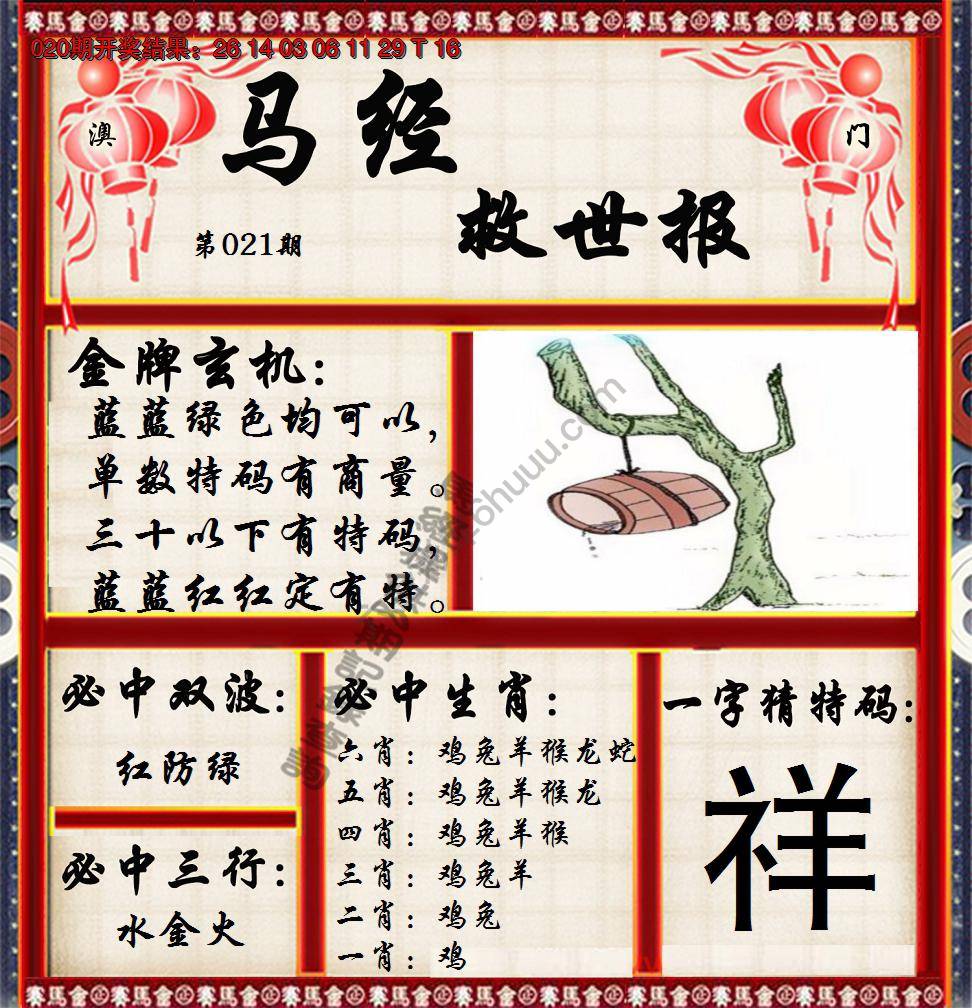 020期开奖结果：26 14 03 06 11 29 T 16
澳
门
马经
救世报
第021期
金牌玄机：
蓝蓝绿色均可以，
单数特码有商量。
三十以下有特码，
蓝蓝红红定有特。
必中双波：
红防绿
必中三行：
水金火
必中生肖：
六肖：鸡兔羊猴龙蛇
五肖：鸡兔羊猴龙
四肖：鸡兔羊猴
三肖：鸡兔羊
二肖：鸡兔
一肖：鸡
一字猜特码：
祥